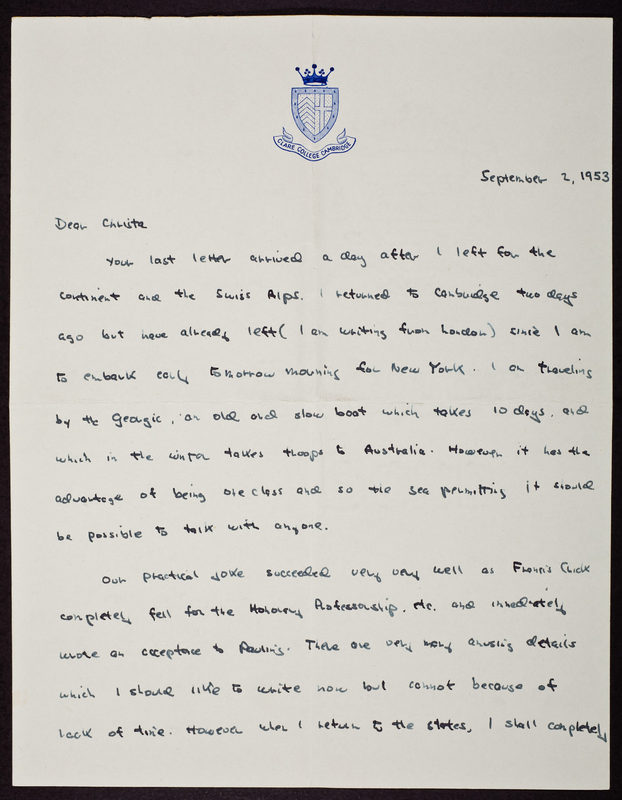 CLARE COLLEGE CAMBRIDGE
September 2, 1953
Dear Christa
Your last letter arrived a day after I left for the
continent and the Swiss Alps. I returned to Cambridge two days
ago but have already left (I am writing from London) since I am
to embark early tomorrow morning for New York. I am traveling
by the Georgic, an old and slow boat which takes 10 days, and
which in the winter takes troops to Australia. However it has the
advantage of being one class and so the sea permitting it should
be possible to talk with anyone.
Our practical joke succeeded very very well as Francis Crick
completely fell for the Honorary Professorship, etc. and immediately
wrote an acceptance to Pauling. There are very many amusing details
which I should like to write now but cannot because of
lack of time. However when I return to the states, I shall completely